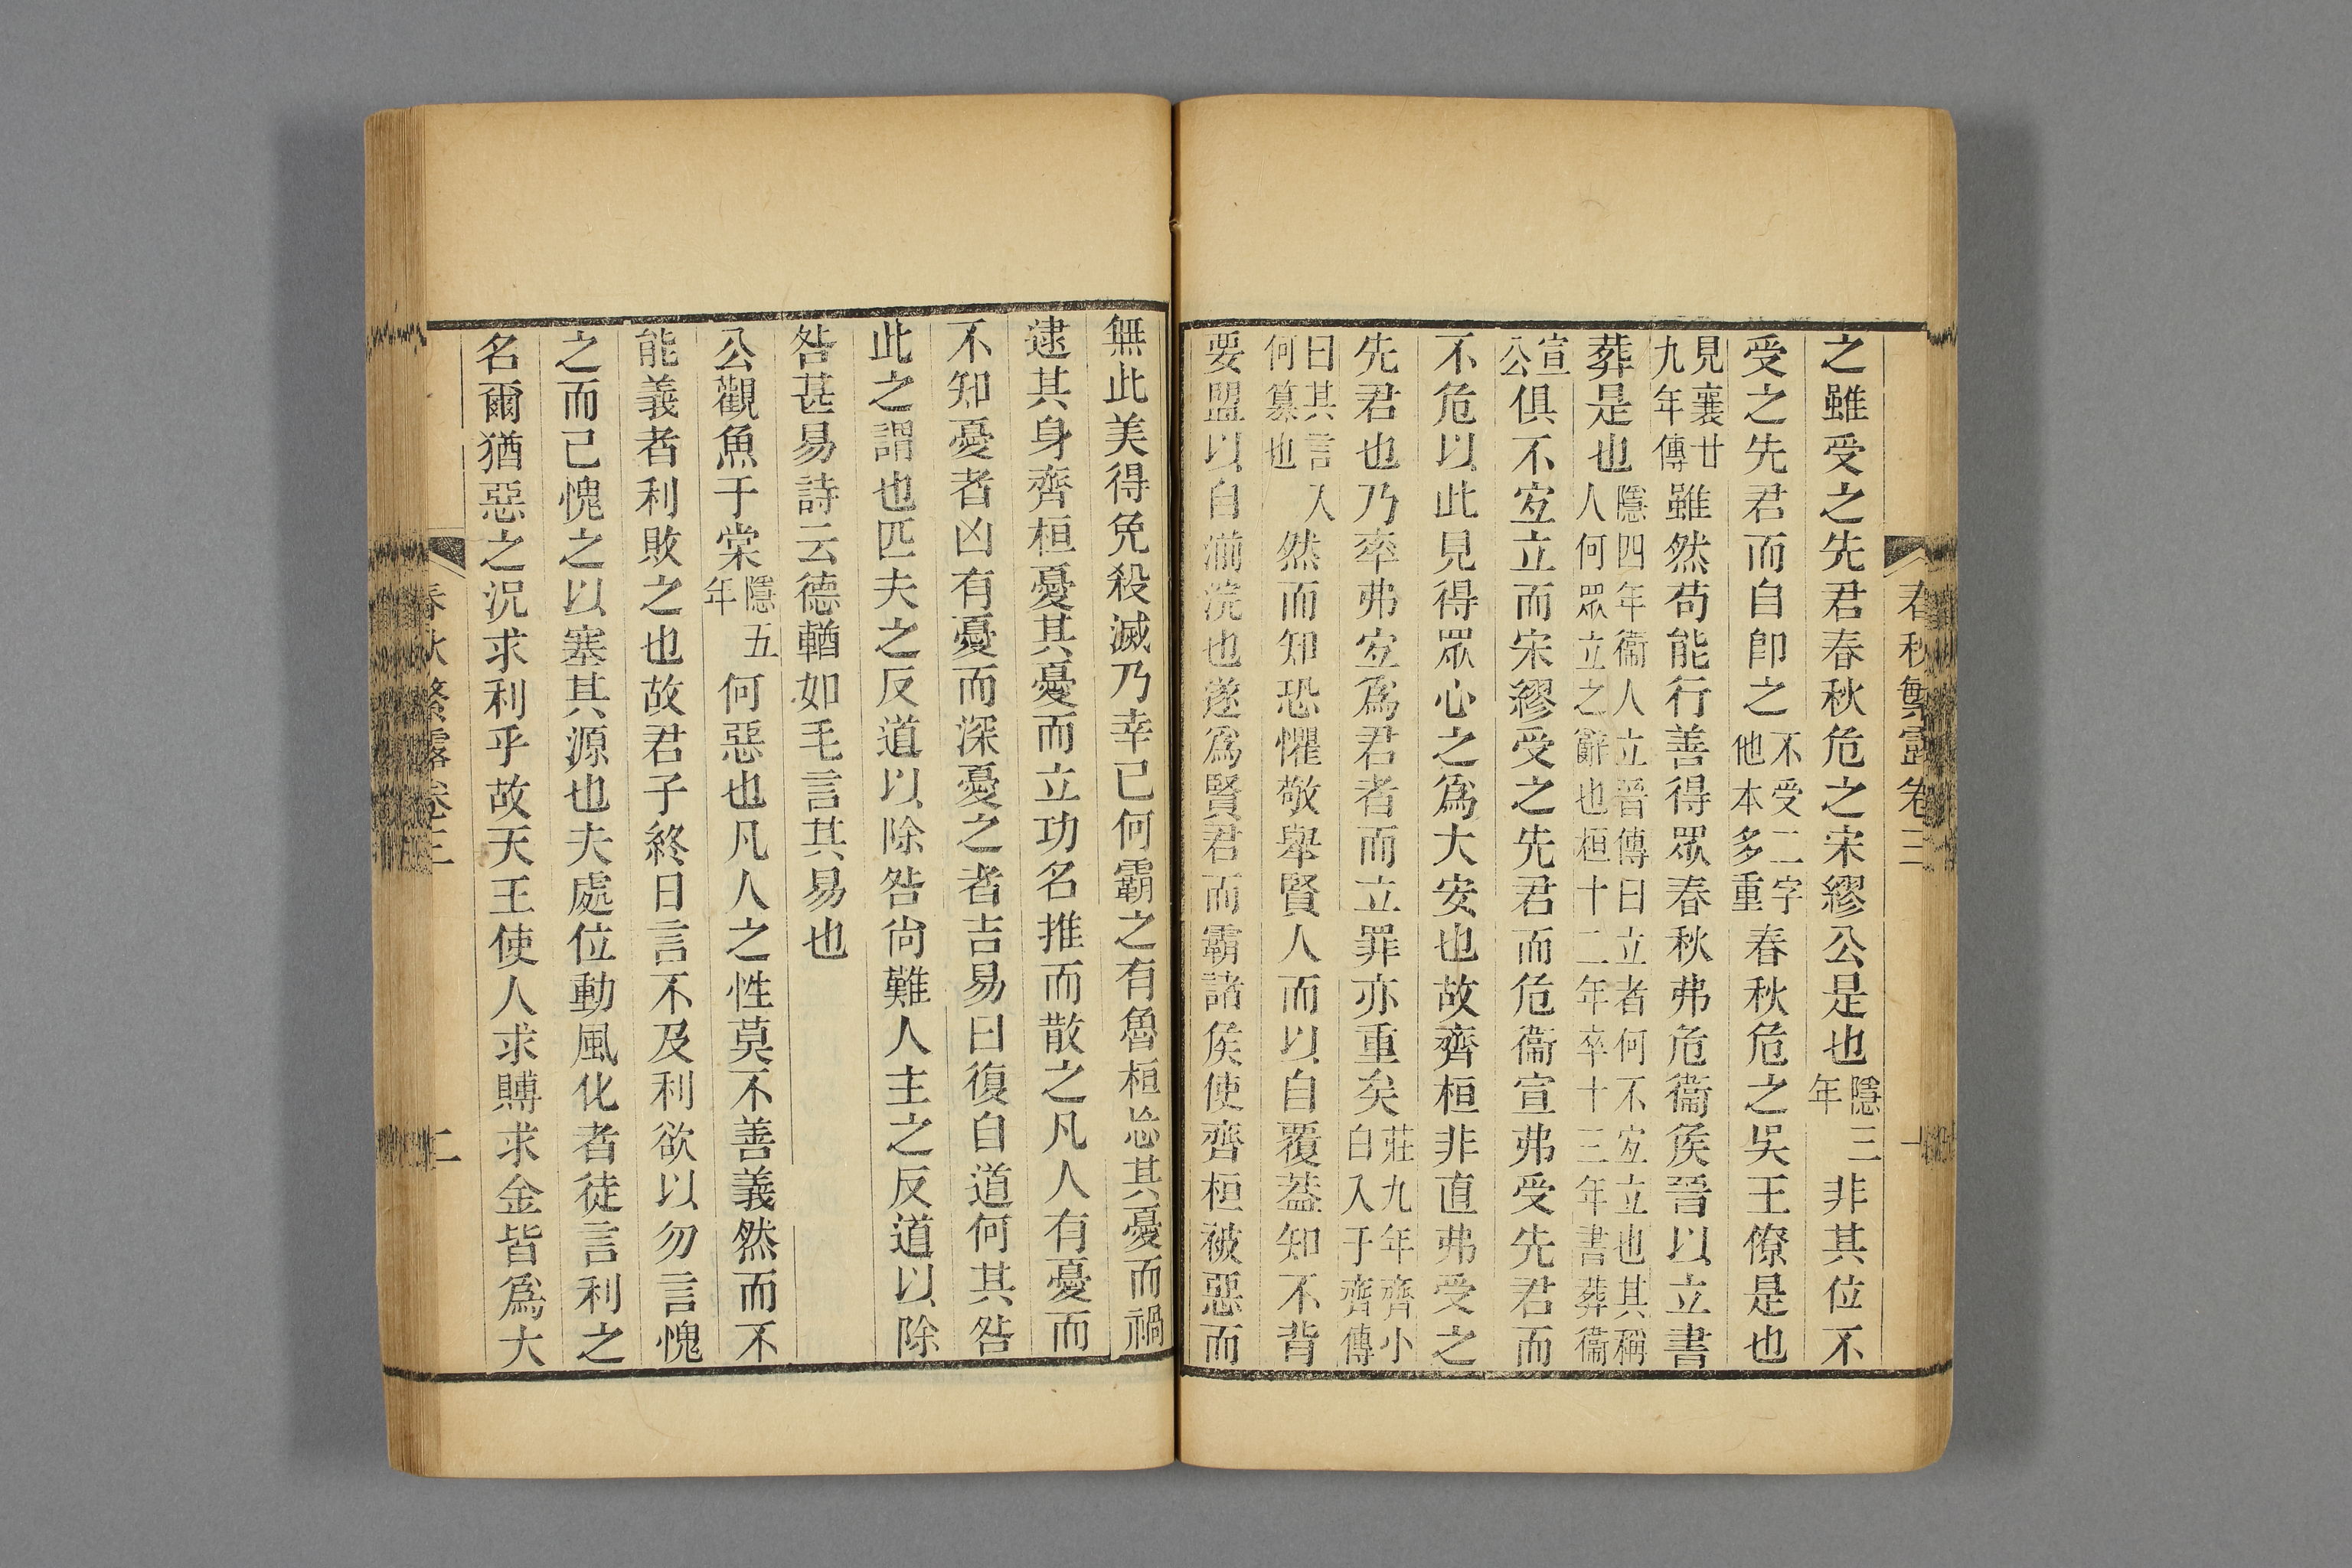 春秋繁露卷三
之雖受之先君春秋危之宋繆公是也隱三年非其位不
受之先君而自卽之不受二字他本多重春秋危之吳王僚是也
見襄廿九年傳雖然苟能行善得眾春秋弗危衞矦晉以立書
葬是也隱四年衞人立晉傳曰立者何不宐立也其稱人何眾立之辭也桓十二年卒十三年書葬衞
宣公俱不宐立而宋繆受之先君而危衞宣弗受先君而
不危以此見得眾心之爲大安也故齊桓非直弗受之
先君也乃率弗宐爲君者而立罪亦重矣莊九年齊小白入于齊傳
曰其言入何篡也然而知恐懼敬舉賢人而以自覆葢知不背
要盟以自湔浣也遂爲賢君而霸諸矦使齊桓被惡而
無此美得免殺滅乃幸已何霸之有魯桓忩其憂而禍
逮其身齊桓憂其憂而立功名推而散之凡人有憂而
不知憂者凶有憂而深憂之者吉易曰復自道何其咎
此之謂也匹夫之反道以除咎尙難人主之反道以除
咎甚易詩云德輶如毛言其易也
公觀魚于棠隱五年何惡也凡人之性莫不善義然而不
能義者利敗之也故君子終日言不及利欲以勿言愧
之而已愧之以塞其源也夫處位動風化者徒言利之
名爾猶惡之況求利乎故天王使人求賻求金皆爲大
春秋繁露卷三
二